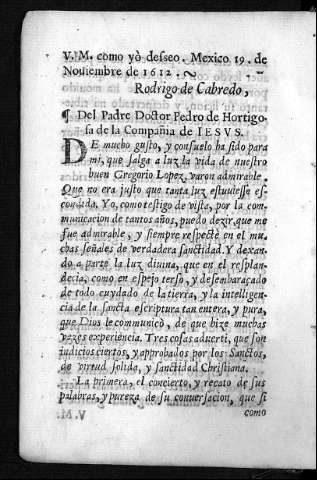 V. M. como yò desseo. Mexico 19. de
Nouiembre de 1612.
Rodrigo de Cabredo,
¶ Del Padre Doctor Pedro de Hortigo-
sa de la Compañia de IESVS.
DE mucho gusto, y consuelo ha sido para
mi, que salga a luz la vida de nuestro
buen Gregorio Lopez, varon admirable.
Que no era justo que tanta luz estuuiesse es-
condida. Yo, como testigo de vista, por la com-
municacion de tantos años, puedo dezir, que me
fue admirable, y siempre respecte en el mu-
chas señales de verdadera sanctidad. Y dexan-
do a parte la luz diuina, que en el resplan-
decia, como en espejo terso, y desembaraçado
de todo cuydado de la tierra, y la intelligen-
cia de la sancta escriptura tan entera, y pura,
que Dios le communicò, de que hize muchas
vezes experiencia. Tres cosas aduerti, que son
indicios ciertos, y approbados por los Sanctos,
de virtud solida, y sanctidad Christiana.
La primera, el concierto, y recato de sus
palabras, y pureza de su conuersacion, que si
como